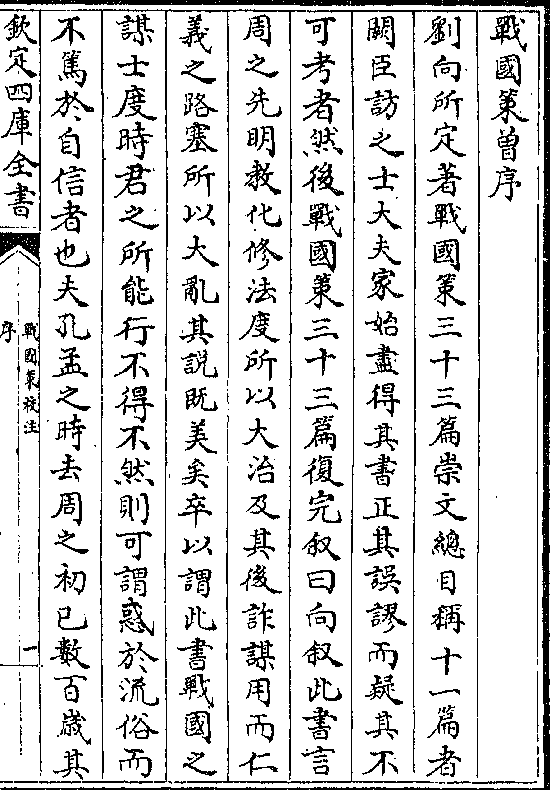 戰國策曽序
劉向所定著戰國策三十三篇崇文總目稱十一篇者
闕臣訪之士大夫家始盡得其書正其誤謬而疑其不
可考者然後戰國策三十三篇復完叙曰向叙此書言
周之先明教化修法度所以大治及其後詐謀用而仁
義之路塞所以大亂其説既美矣卒以謂此書戰國之
謀士度時君之所能行不得不然則可謂惑於流俗而
不篤於自信者也夫孔孟之時去周之初已數百歳其
欽定四庫全書
戰國策校注
序
一